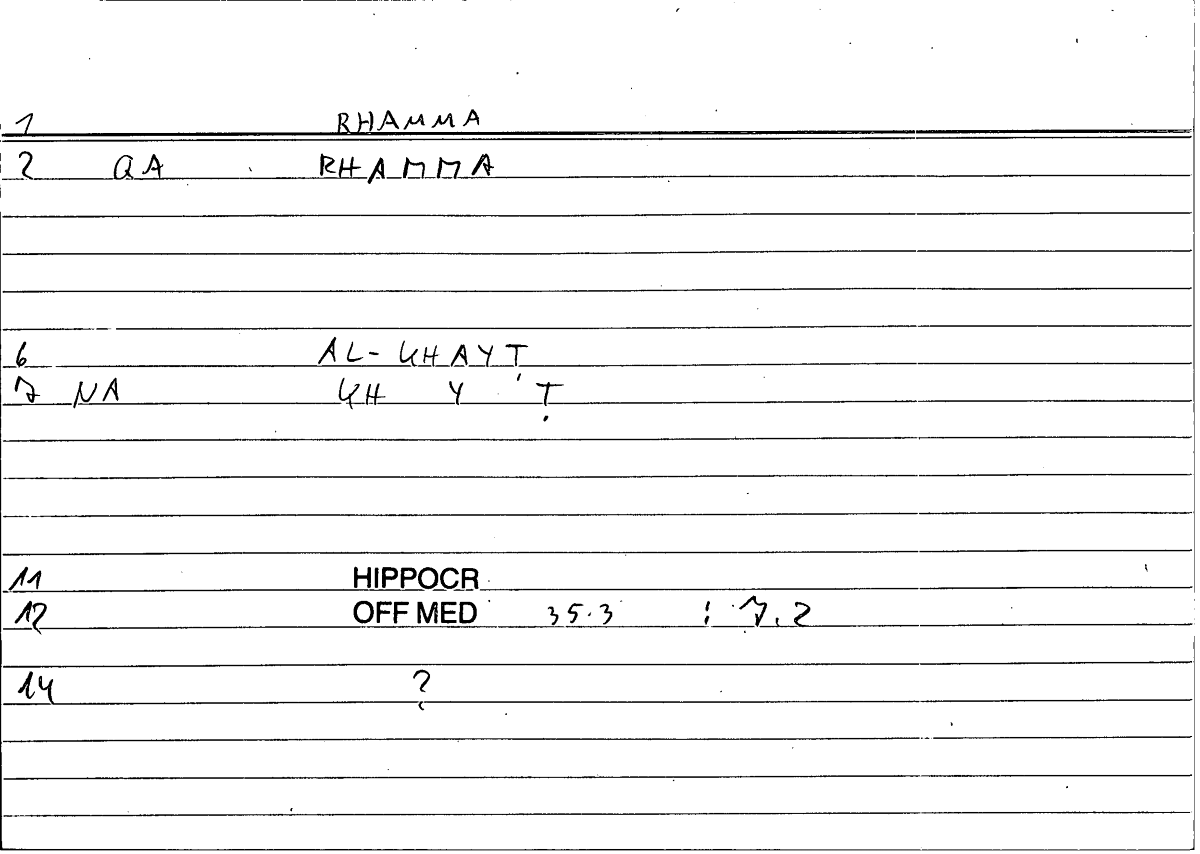 1 RHAMMA
2 QA RHAMMA
6 AL-KHAYṬ
7 NA KH Y Ṭ
11 HIPPOCR
12 OFF MED 35.3 : 7.2
14 ?